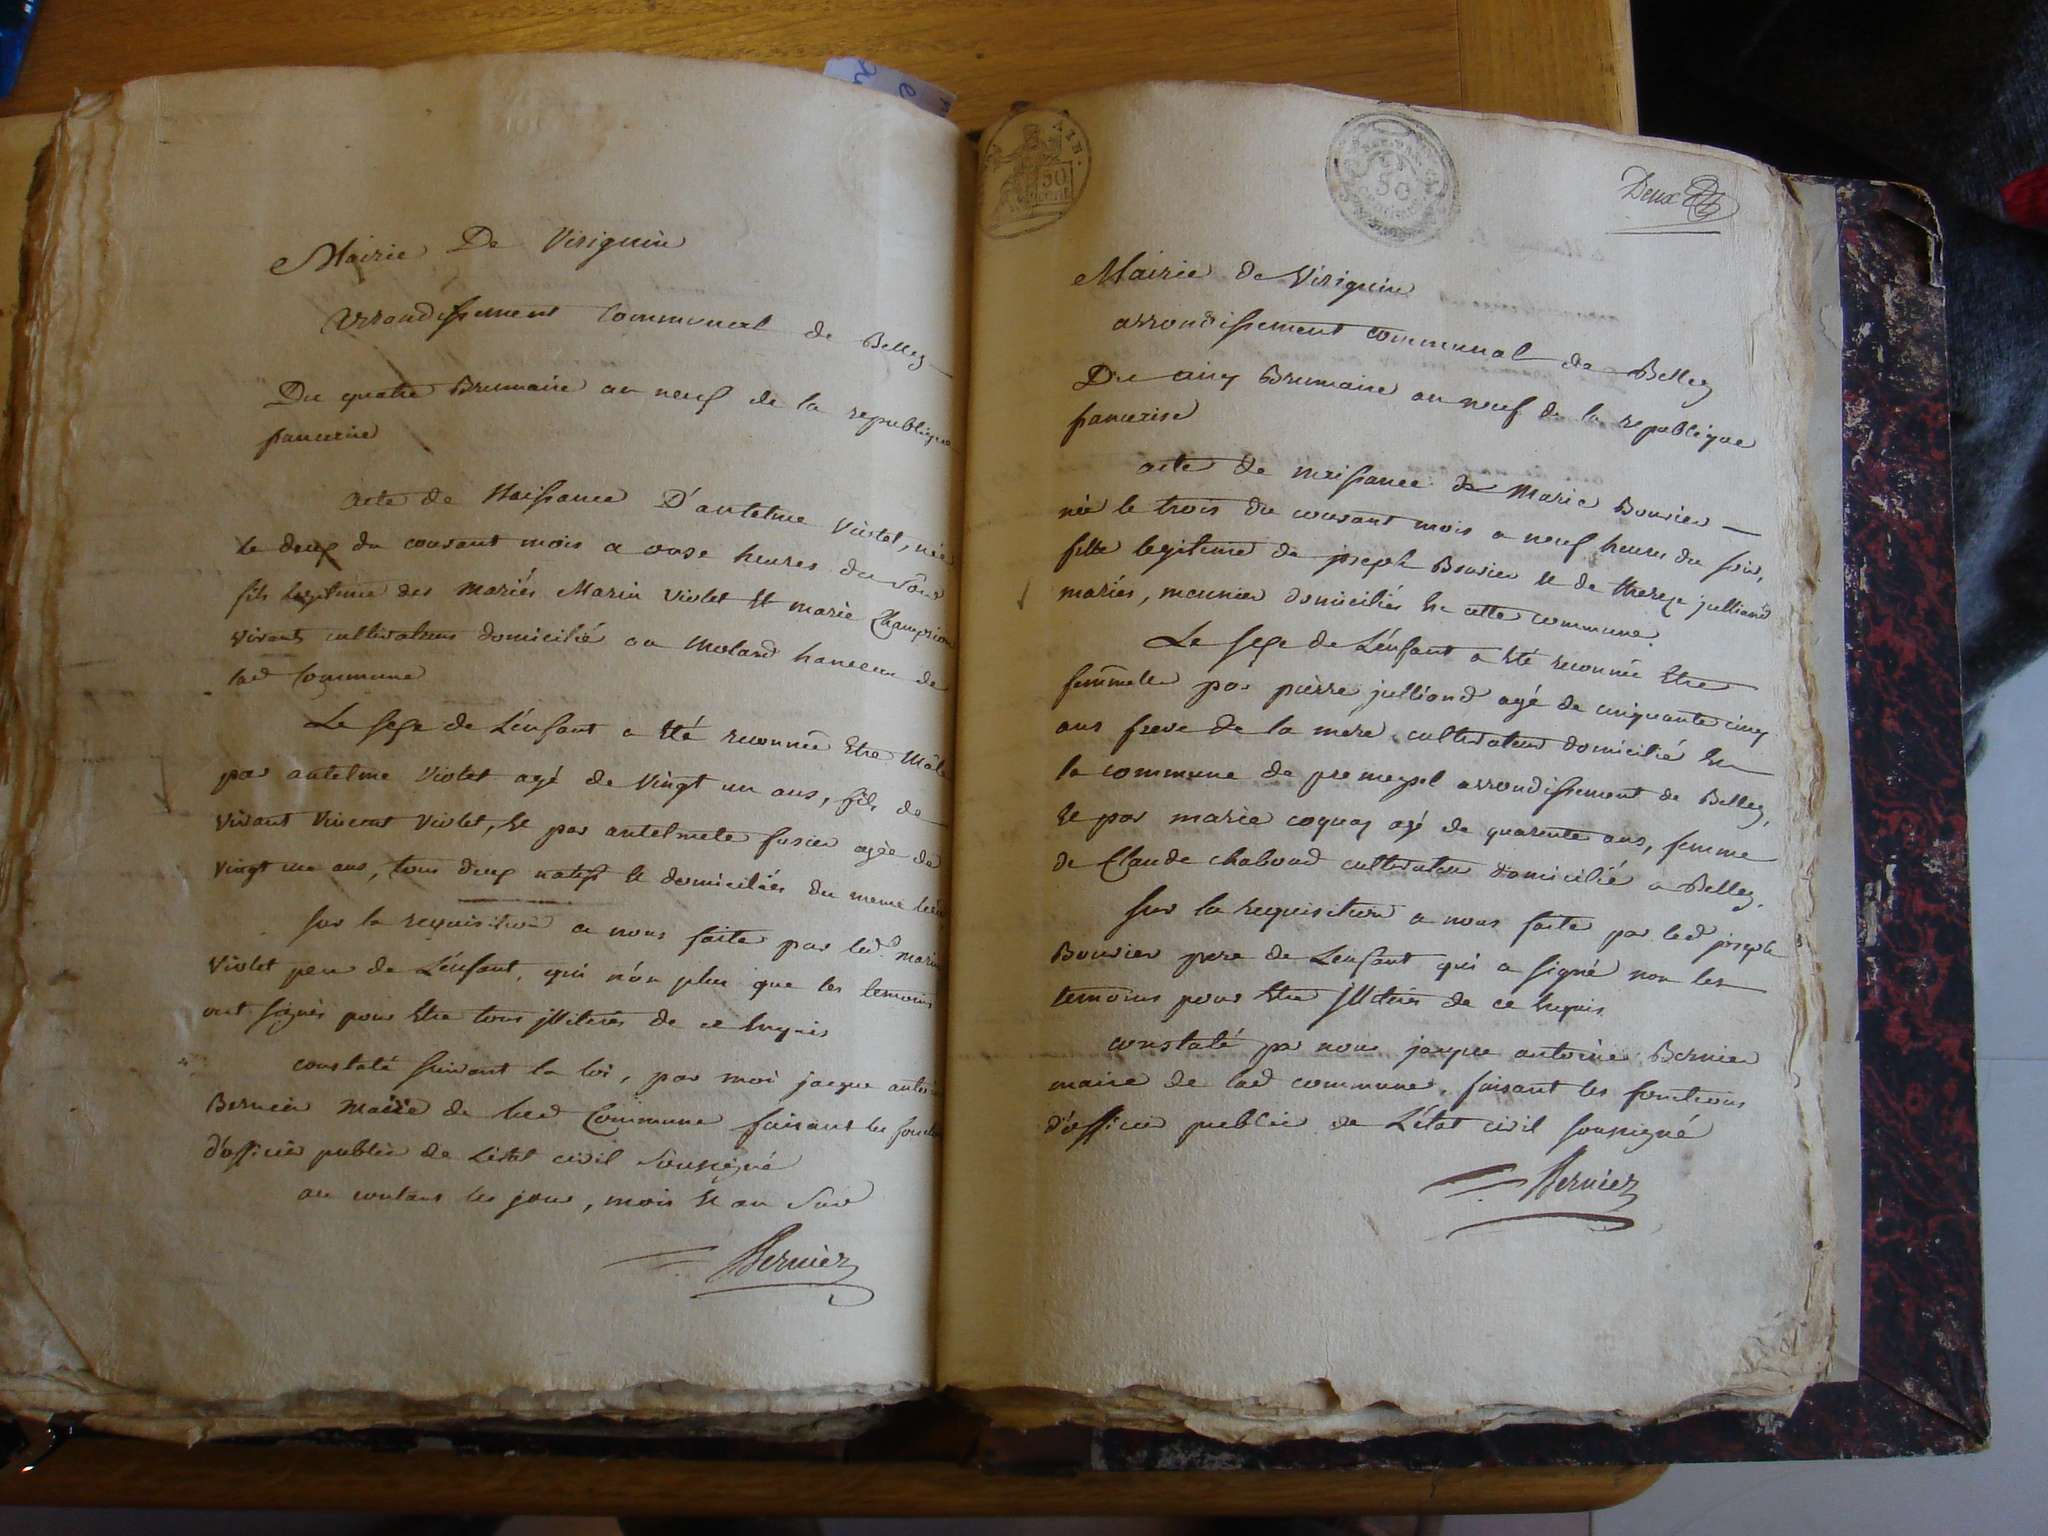 Mairie De Virignin
Arrondissement Communal de Belley
Du quatre Brumaire an neuf de la republique
francaise
Acte de Naissance D'antelme Violet, née
le deux du courant mois a onze heures du Soir
fils legitime des mariés Marin Violet et marie Champion
vivants cultivateurs domicilié au Moland hameau de
lad Commune
Le sexe de L'enfant a été reconnu Etre Mâle
par antelme Violet agé de vingt un ans, fils de
vivant Vincent Violet, et par antelmete fusier agée de
vingt un ans, tous deux natifs et domiciliés du meme lieu
Sur la requisition a nous faite par led. marin
Violet pere de L'enfant, qui non plus que les temoins
ont signés pour Etre tous jlliterés de ce Enquis
constaté suivant la loi, par moi jacque antoine
Bernier Maire de lad Commune faisant les fonctions
d'officier public de L'état civil Soussigné
au contant les jour, mois et an Sud
Bernier
50
50
Deux
Mairie de Virignin
arrondissement communal de Belley
Du cinq Brumaire an neuf de la republique
francaise
acte de naissance de Marie Bouvier
née le trois du courant mois a neuf heures du soir,
fille legitime de joseph Bouvier et de therese julliand
mariés, meunier domiciliés En cette commune
Le sexe de L'enfant a été reconnu Etre
femmelle par pierre julliand agé de cinquante cinq
ans frere de la mere cultivateur domicilié En
la commune de premeysel arrondissement de Belley,
et par marie coquay agé de quarente ans, femme
de Claude chaboud cultivateur domicilié a Belley.
Sur la requisition a nous faite par led joseph
Bouvier pere de L'enfant qui a signé non les
temoins pour Etre jlliterés de ce Enquis
constaté par nous jacque antoine Bernier
maire de lad commune, faisant les fonctions
d'officier public de L'état civil soussigné
Bernier